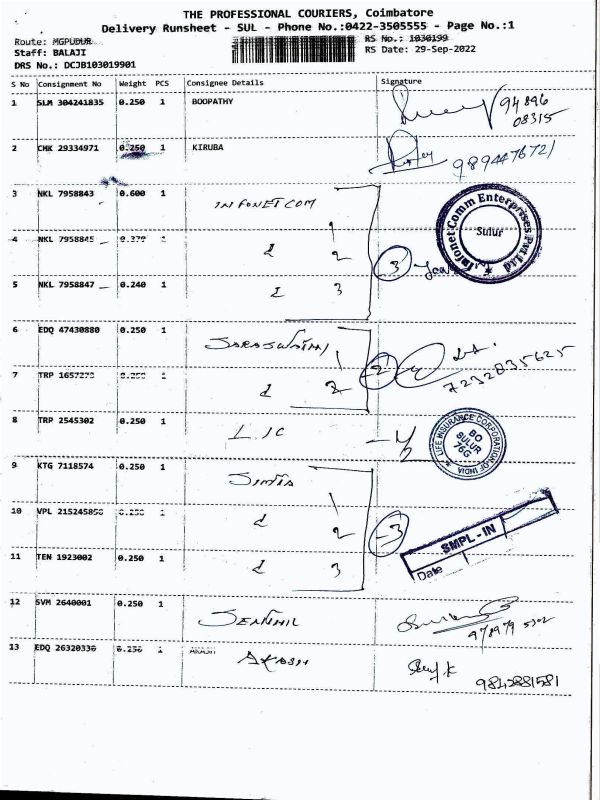 THE PROFESSIONAL COURIERS, Coimbatore
Delivery Runsheet - SUL - Phone No.:0422-3505555 - Page No.:1
Route: MGPUDUR
RS No.: 1030199
Staff: BALAJI
RS Date: 29-Sep-2022
DRS No.: DCJB103019901
S No Consignment No Weight PCS Consignee Details Signature
1 SLM 304241835 0.250 1 BOOPATHY 94896
08315
2 CHK 29334971 0.250 1 KIRUBA 9894476721
3 NKL 7958843 0.600 1 INFONETCOM 1
Infonet Comm Enterprises Pvt Ltd
Sulur
4 NKL 7958845 0.370 1 2
3
5 NKL 7958847 0.240 1 3
6 EDQ 47430880 0.250 1 SARASWATHI 1
7232835625
7 TRP 1657273 0.250 1 2
2
8 TRP 2545302 0.250 1 LIC
LIFE INSURANCE CORPORATION OF INDIA
BO
SULUR
76G
9 KTG 7118574 0.250 1 1
10 VPL 215245856 0.250 1 2
3
SMPL - IN
Date
11 TEN 1923002 0.250 1 3
12 SVM 2640001 0.250 1 SENTHIL
13 EDQ 26320330 0.250 1 AKASH
AKASH
9842881581